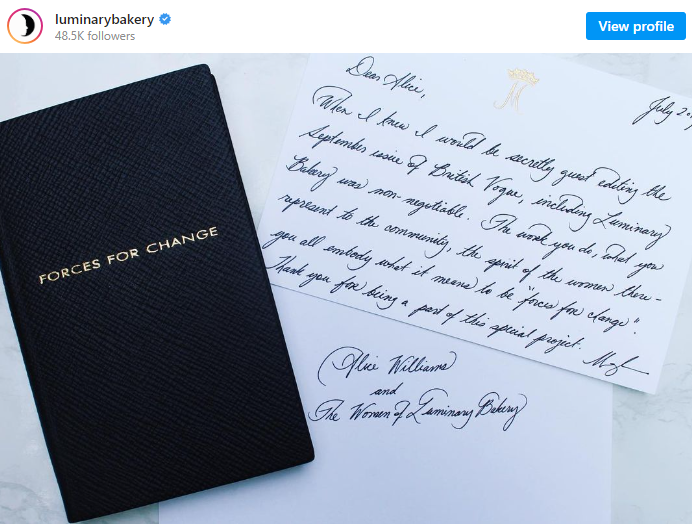 luminarybakery
48.5K followers
View profile
FORCES FOR CHANGE
Dear Alice,
M
July 20
When I knew I would be secretly guest editing the
September issue of British Vogue, including Luminary
Bakery was non-negotiable. The work you do, what you
represent to the community, the spirit of the women there -
you all embody what it means to be "forces for change".
Thank you for being a part of this special project.
Alice Williams
and
The Women of Luminary Bakery